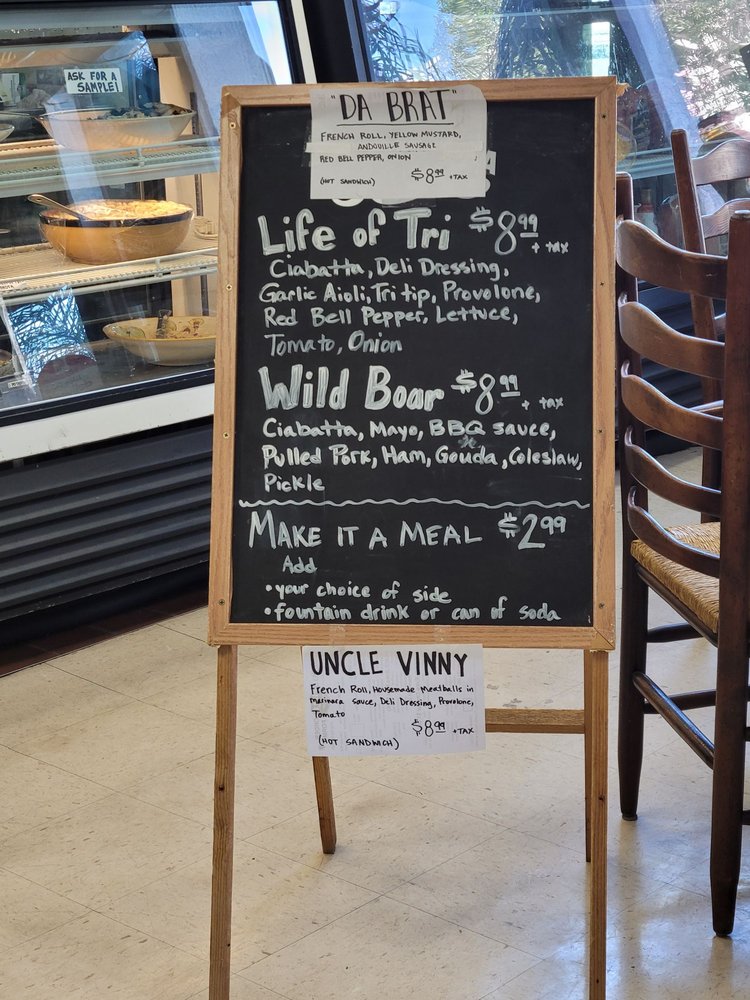 ASK FOR A
SAMPLE!
"DA BRAT"
FRENCH ROLL, YELLOW MUSTARD,
ANDOUILLE SAUSAGE
RED BELL PEPPER, ONION
(HOT SANDWICH) $8.99 + TAX
Life of Tri $8.99 + tax
Ciabatta, Deli Dressing,
Garlic Aioli, Tri tip, Provolone,
Red Bell Pepper, Lettuce,
Tomato, Onion
Wild Boar $8.99 + tax
Ciabatta, Mayo, BBQ sauce,
Pulled Pork, Ham, Gouda, Coleslaw,
Pickle
MAKE IT A MEAL $2.99
Add
• your choice of side
• fountain drink or can of soda
UNCLE VINNY
French Roll, Housemade Meatballs in
marinara sauce, Deli Dressing, Provolone,
Tomato
(HOT SANDWICH) $8.99 + TAX